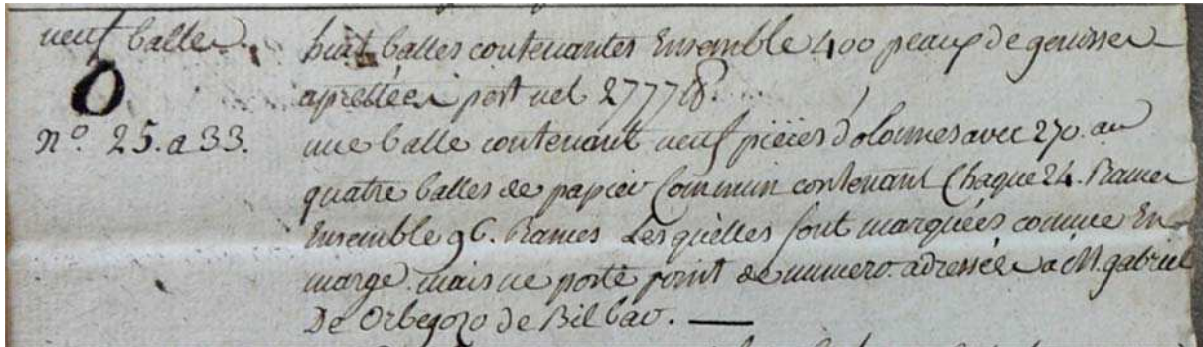 neuf balles.
O
nº. 25. a 33.
huit balles contenantes Ensemble 400 peaux de genisses
aprestées post net 2777 lb.
une balle contenant neuf pièces d'olonnes avec 270. au
quatre balles de papier Commun contenant Chaque 24. Rames
Ensemble 96. Rames Les quèlles sont marquées comme En
marge. mais ne porte point de numero. adressées a M. gabriel
De Orbegozo de Bilbao.